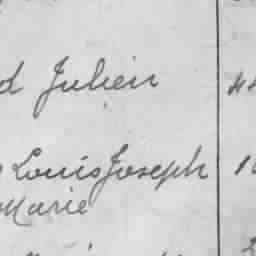 d Julien 44
Louis Joseph 1
Marie